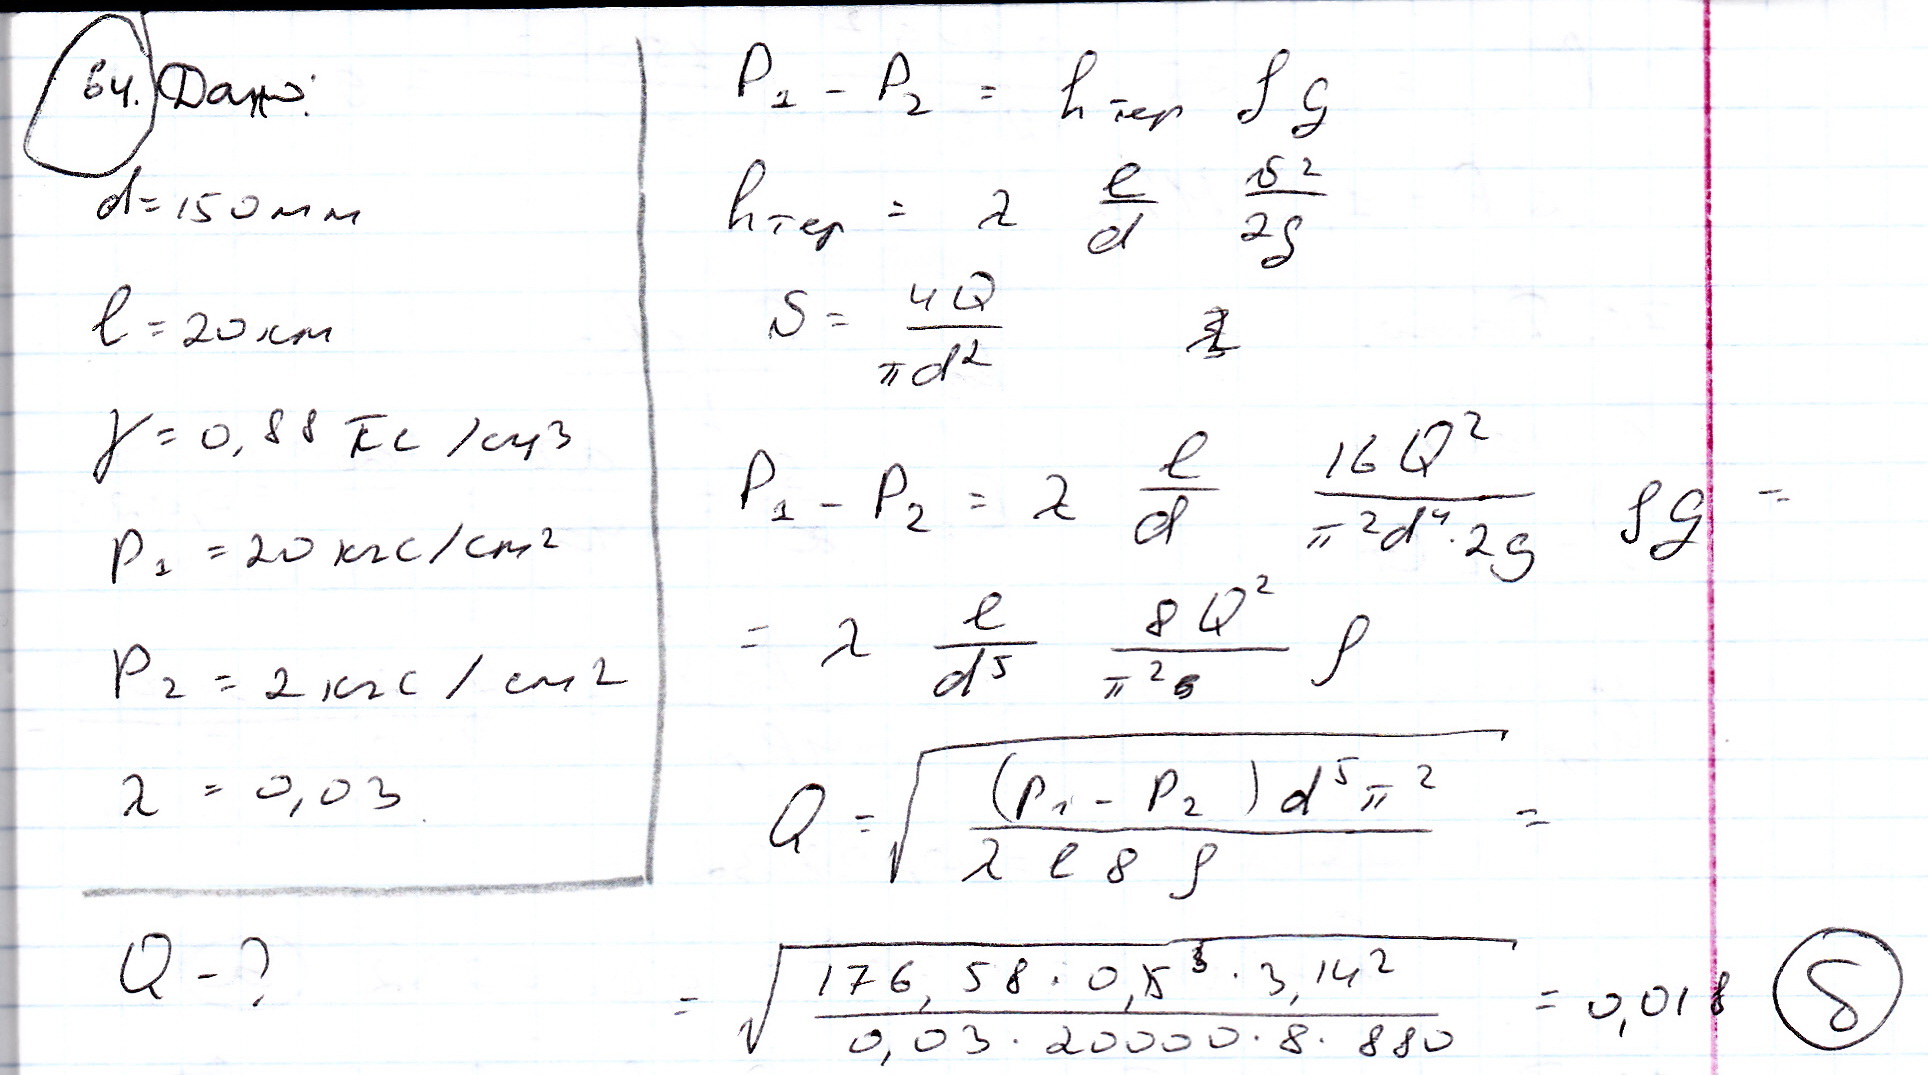 64. Дано:
d = 150 мм
l = 20 км
γ = 0,88 Гс / см3
P₁ = 20 кгс/см²
P₂ = 2 кгс / см2
λ = 0,03
Q - ?
P₁ - P₂ = hтер ρg
hтер = λ l/d υ²/2g
υ = 4Q/πd²
P₁ - P₂ = λ l/d 16Q²/π²d⁴·2g ρg =
= λ l/d⁵ 8Q²/π² ρ
Q = √((P₁ - P₂)d⁵π²/λ l 8 ρ) =
= √(176,58 · 0,15⁵ · 3,14²/0,03 · 20000 · 8 · 880) = 0,018 б